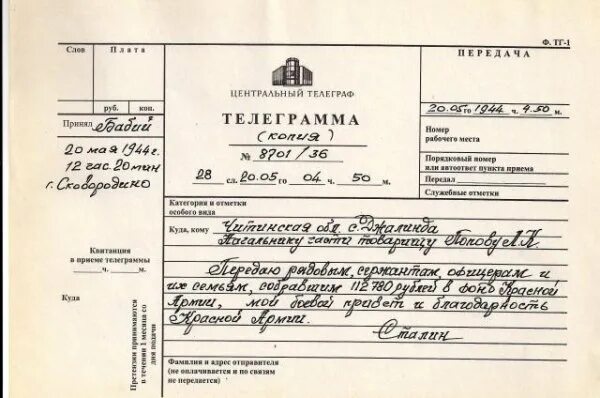 Ф. ТГ-1
Слов
Плата
руб.
коп.
Принял Бабий
20 мая 1944 г.
12 час. 20 мин
г. Сковородино
Квитанция
в приеме телеграммы
ч. м.
Куда
Претензии принимаются
в течении 1 месяца со
дня подачи
ЦЕНТРАЛЬНЫЙ ТЕЛЕГРАФ
ТЕЛЕГРАММА
(копия)
№ 8701/36
28 сл. 20.05 го 04 ч. 50 м.
Категория и отметки
особого вида
Куда, кому Читинская обл. с. Джалинда
Начальнику части товарищу Попову А.К.
Передаю рядовым, сержантам, офицерам и
их семьям, собравшим 112780 рублей в фонд Красной
Армии, мой боевой привет и благодарность
Красной Армии.
Сталин
Фамилия и адрес отправителя
(не оплачивается и по связи
не передается)
ПЕРЕДАЧА
20.05 го 1944 ч. 4.50 м.
Номер
рабочего места
Порядковый номер
или автоответ пункта приема
Передал
Служебные отметки